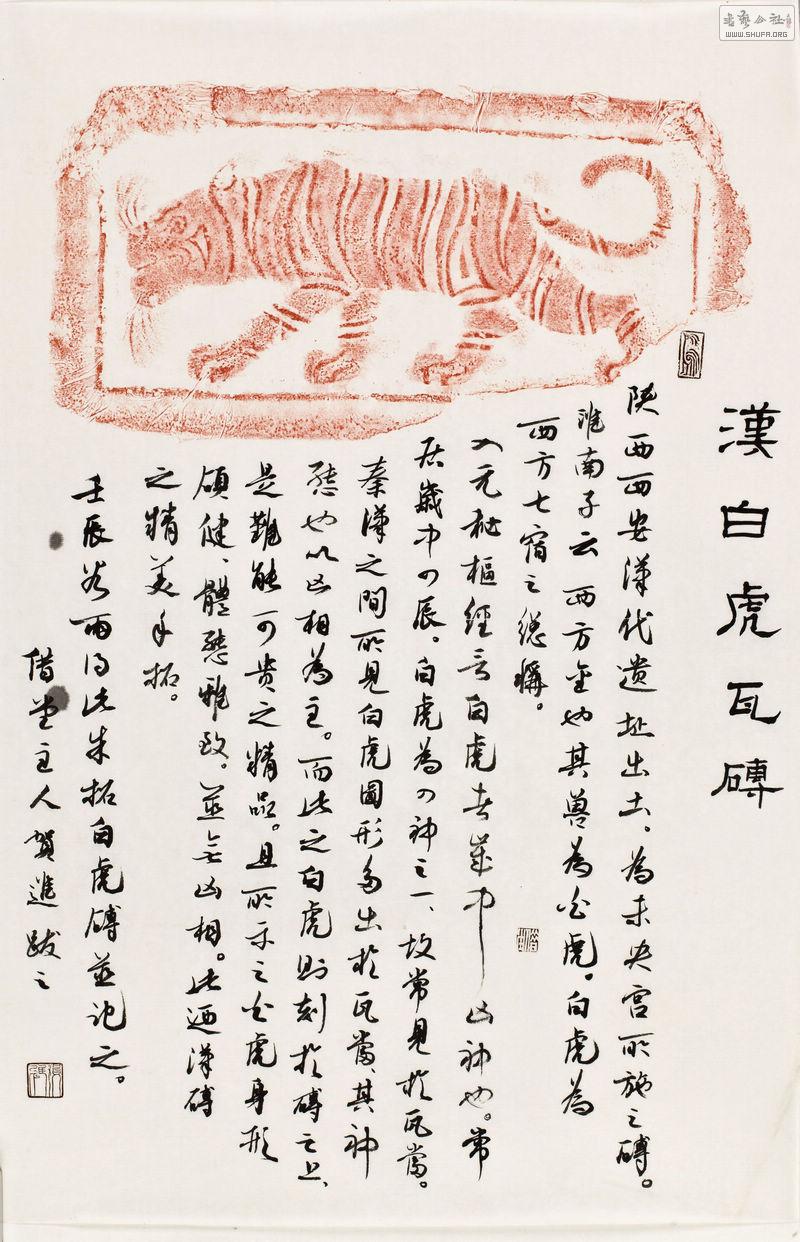 漢白虎瓦磚
陝西西安漢代遗址出土、為未央宫所施之磚。
淮南子云西方金也其兽為白虎。白虎為
西方七宿之總稱。
入元秘樞經言白虎者歲中凶神也。常
居歲中四辰。白虎為四神之一、故常見於瓦當。
秦漢之間所見白虎圖形多出於瓦當、其神
態也以凶相為主。而此之白虎則刻於磚之上、
是難能可贵之精品。且所示之白虎身形
颀健、體態雅致。並無凶相。此迺漢磚
之精美手拓。
壬辰谷雨得此朱拓白虎磚並記之。
借堂主人賀進跋之
書藝公社
WWW.SHUFA.ORG